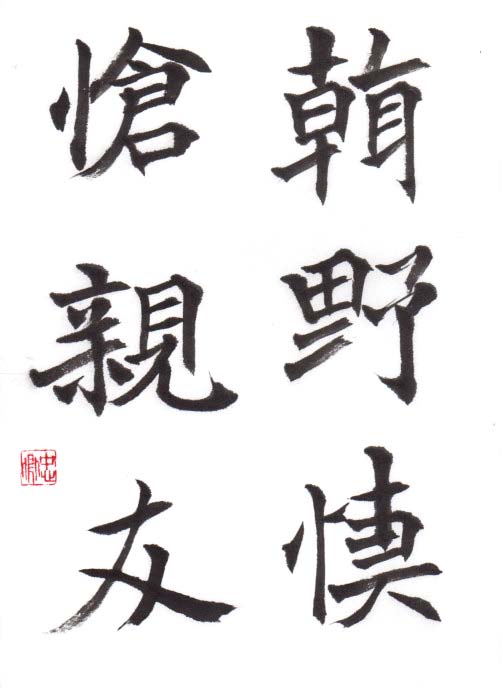 朝野慎
愴親友